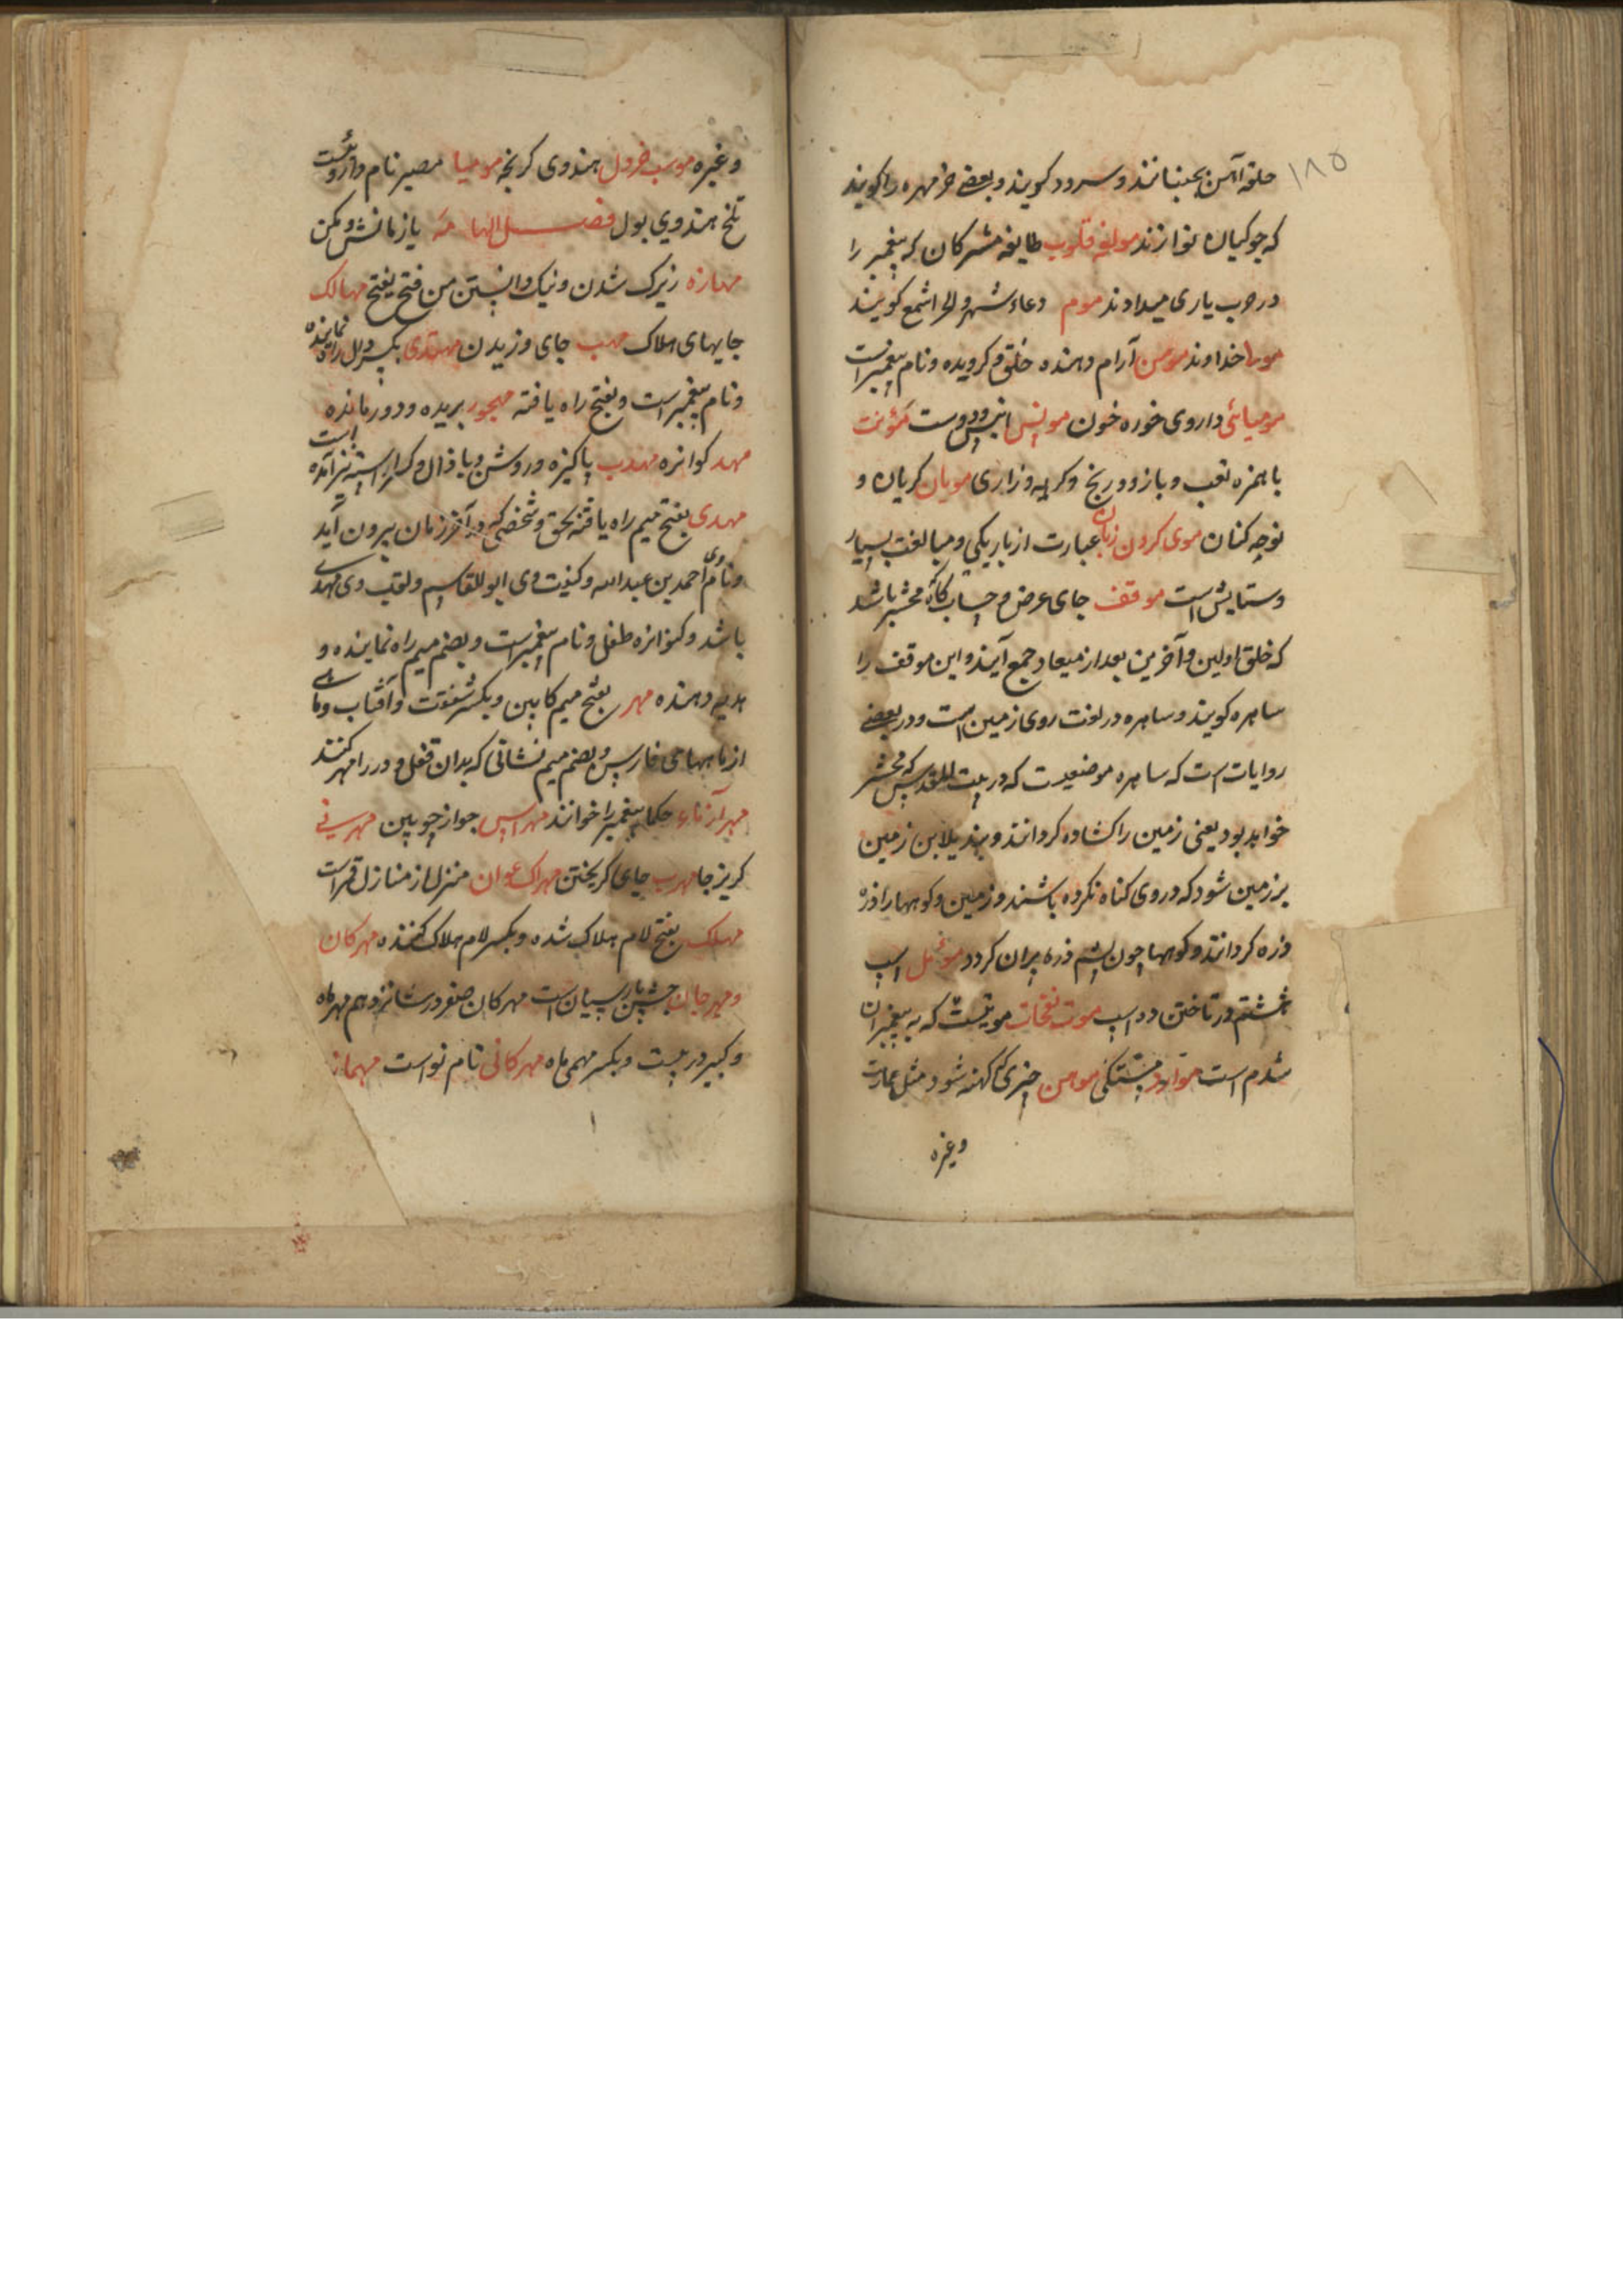 ۱۸۵
حلقه آهن بجنبانند و سرود گویند و بعضی خرمهره را گویند
که جوکیان نوازند مولفه قلوب طایفه مشرکان که پیغمبر را
در حرب یاری میدادند موم دعاء شهر و لحر اشمع گویند
مولا خداوند مومن آرام دهنده خلق و گرویده و نام پیغمبر است
مومیائی داروی خوره خون مونس انیس و دوست مؤنت
با همزه تعب و باز و ورنج و کریه و زاری مویان کریان و
نوحه کنان موی کردن زبان عبارت از باریکی و مبالغت بسیار
و ستایش است موقف جای عرض و حساب گاه محشر باشد
که خلق اولین و آخرین بعد از میعاد جمع آیند و این موقف را
ساهره گویند و ساهره در لغت روی زمین است و در بعضی
روایات است که ساهره موضعیست که در بیت المقدس که محشر
خواهد بود یعنی زمین را کشاده کردانند و بتدیلا بن زمین
بر زمین شود که در وی کناه نکرده باشند و زمین و کوهها را ذره
ذره کردانند و کوهها چون پشم ذره پران کردد موئمل اسپ
هشتم در تاختن ده اسپ موت نفحات موتیست که به پیغمبران
شدم است موارد خستگی مومن چیزی که کهنه شود مثل عمارت
وغیره
وغیره موسب خردل هندوی کرنجه مومیا مصیر نام داروئیست
تلخ هندوی بول فصل الها مه یاز مانش و مکن
مهازه زیرک شدن و نیک دانستن من فتح یفتح مهالک
جایهای هلاک مهب جای وزیدن مهتدی بکسر دال راه نماینده
و نام پیغمبر است و بفتح راه یافته مهجور بریده و دور مانده
مهد کوازه مهذب پاکیزه و روشن و با ذال و کرار استه نیز آمده است
مهدی بفتح میم راه یافته بحق و شخصی که در آخر زمان بیرون آید
و نام وی احمد بن عبدالله و کنیت وی ابوالقاسم و لقب وی مهدی
باشد و کنوازه طفل و نام پیغمبر است و بضم میم راه نماینده و
هدیه دهنده مهر بفتح میم کابین و بکسر شفقت و آفتاب و ماهی
از ماههای فارسی و بضم میم نشانی که بدان قفل و در را مهر کنند
مهر آزناء حکما پیغمبر را خوانند مهراس جواز چوبین مهرنی
کریز جا مهرب جای کریختن مهراک عوان منزل از منازل قمر است
مهلک بفتح لام هلاک شده و بکسر لام هلاک کننده مهرکان
و مهرجان جشن پارسیان است مهرکان صغر در شانزدهم مهر ماه
و کبیر در بیست و یکسر مهمی ماه مهرکانی نام نواست مهماز